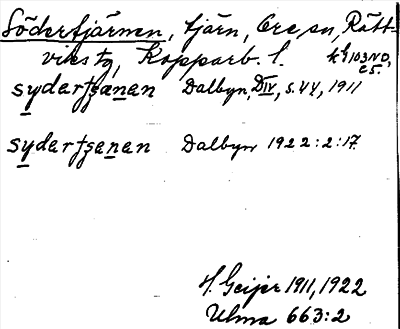 Södertjärnen, tjärn, Ore sn, Rätt-
viks tg, Kopparb. l. kG103NO,
C5.
sydertʃænen Dalbyn, DIV, s. 44, 1911
sydertʃenen Dalbyn 1922:2:17
H. Geijer 1911, 1922
Ulma 663:2